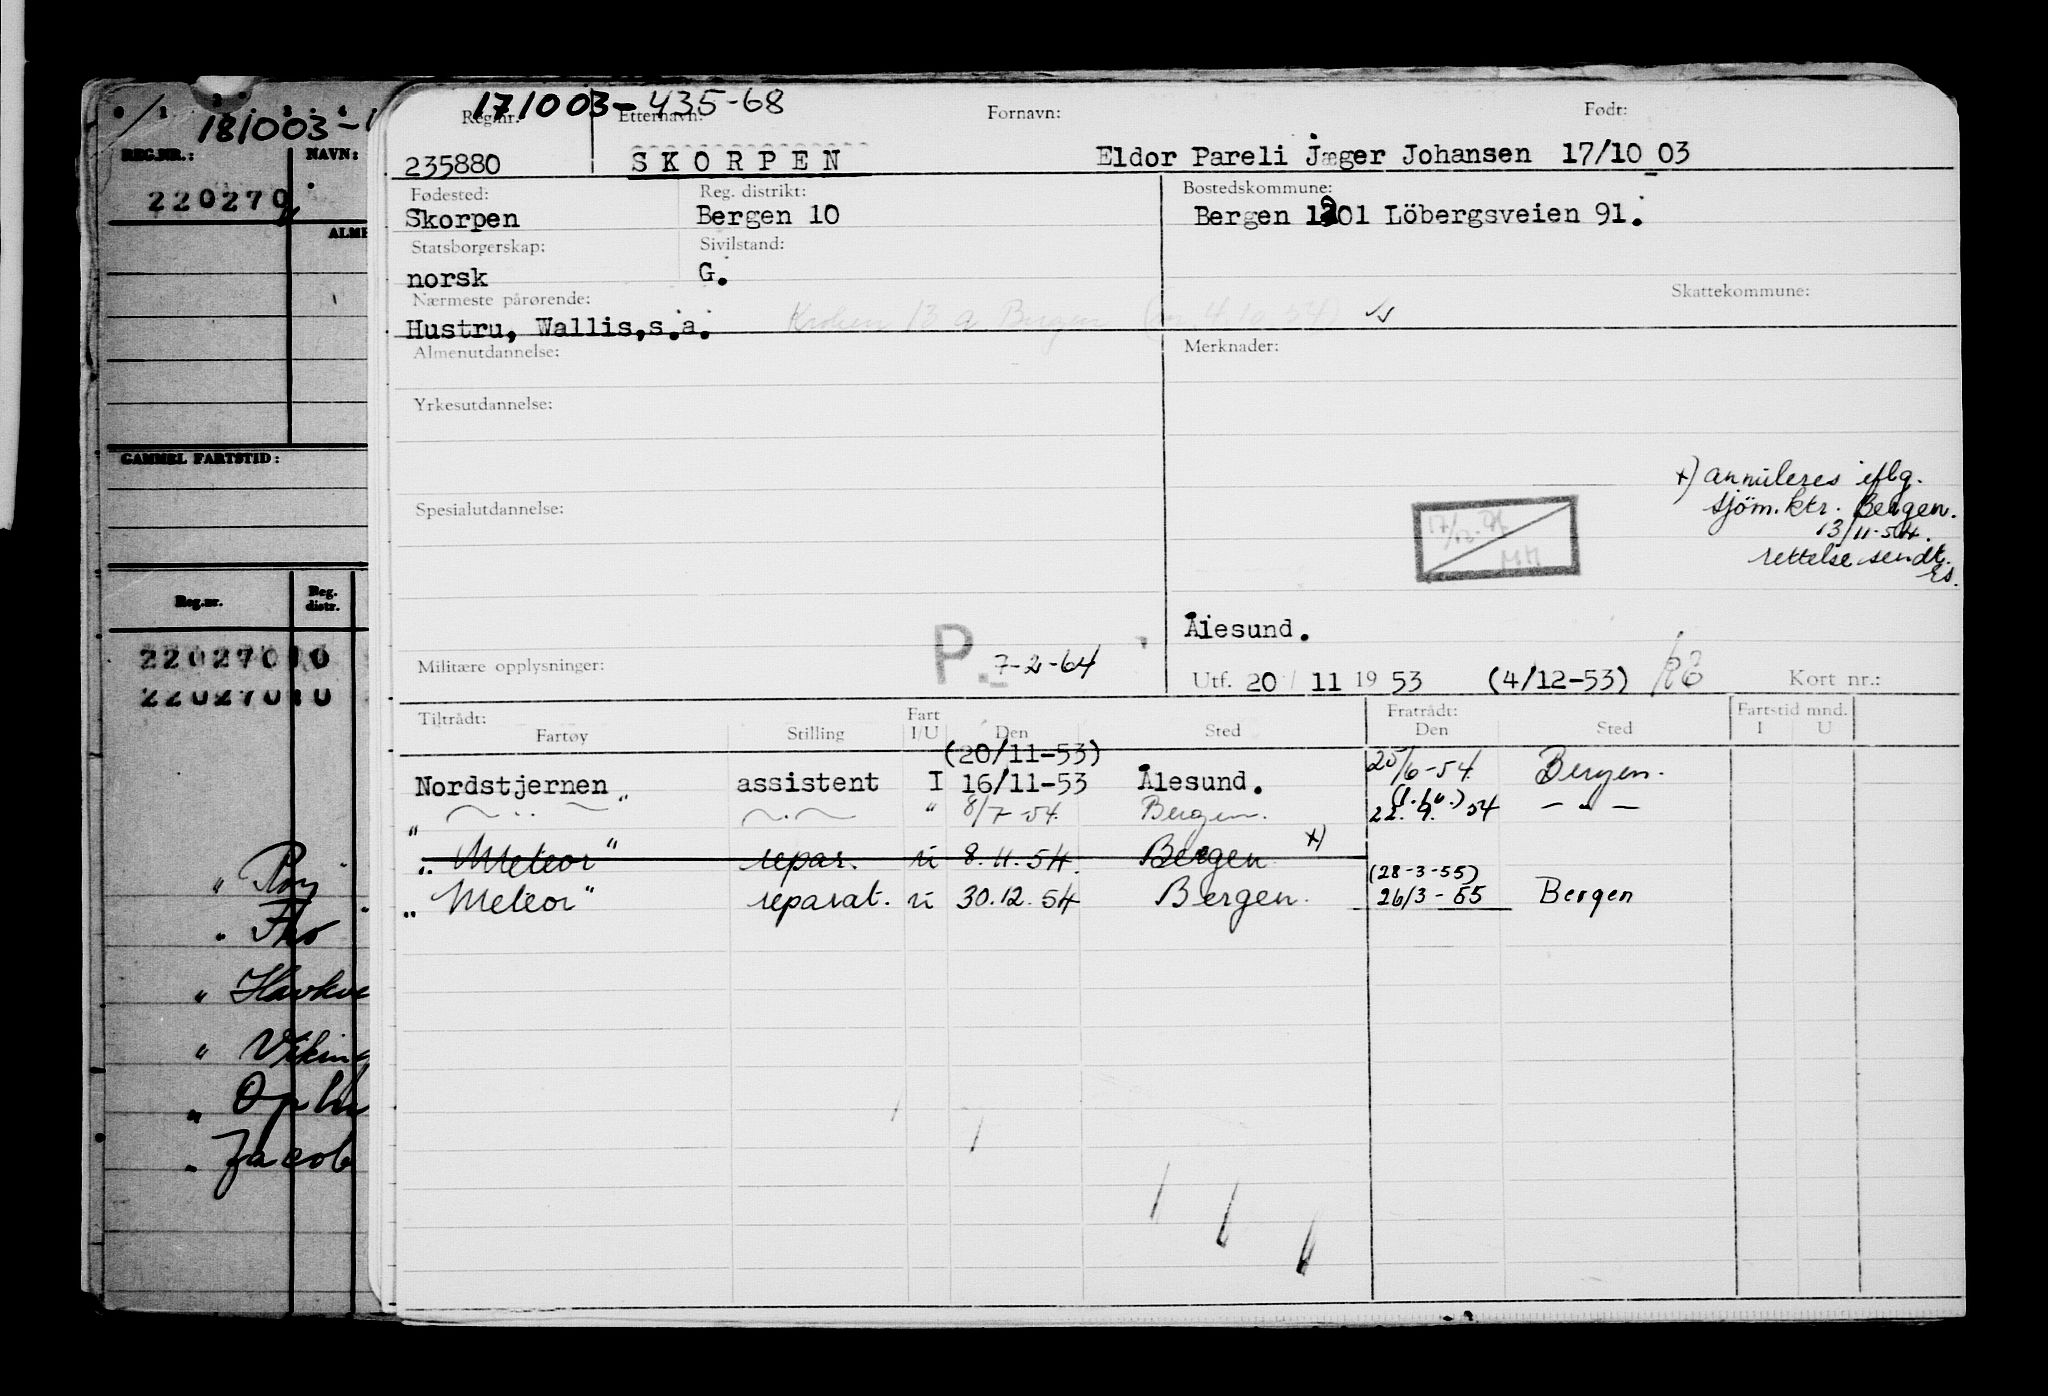 171003-435-68
Reg.nr. Etternavn: Fornavn: Født:
235880 SKORPEN Eldor Pareli Jæger Johansen 17/10 03
Fødested: Reg. distrikt: Bostedskommune:
Skorpen Bergen 10 Bergen 1301 Löbergsveien 91.
Statsborgerskap: Sivilstand:
norsk G.
Nærmeste pårørende: Skattekommune:
Hustru, Wallis,s.a. 13 a Bergen
Almenutdannelse: Merknader:
Yrkesutdannelse:
x) annuleres iflg.
sjöm.ktr. Bergen.
13/11-54.
rettelse sendt.
Es.
Spesialutdannelse:
Ålesund.
Militære opplysninger: P. 7-2-64 Utf. 20/ 11 19 53 (4/12-53) Kort nr.:
Tiltrådt: Fart Fratrådt: Fartstid mnd.
Fartøy Stilling I/U Den Sted Den Sted I U
(20/11-53)
Nordstjernen assistent I 16/11-53 Ålesund. 25/6-54 Bergen.
" 8/7-54. Bergen. 22. 9. 54 — " —
"Meteor" repar. U 8.11.54. Bergen x)
(28-3-55)
"Meteor" reparat. U 30.12.54 Bergen. 26/3-55 Bergen
181003-1
1 2 3 4
REG.NR.: NAVN:
220270
ALME
GAMMEL FARTSTID:
Reg.nr. Reg. distr.
220270 10
220270 10
" Roy
" Tho
" Havkve
" Viking
" Ophi
" Jacob